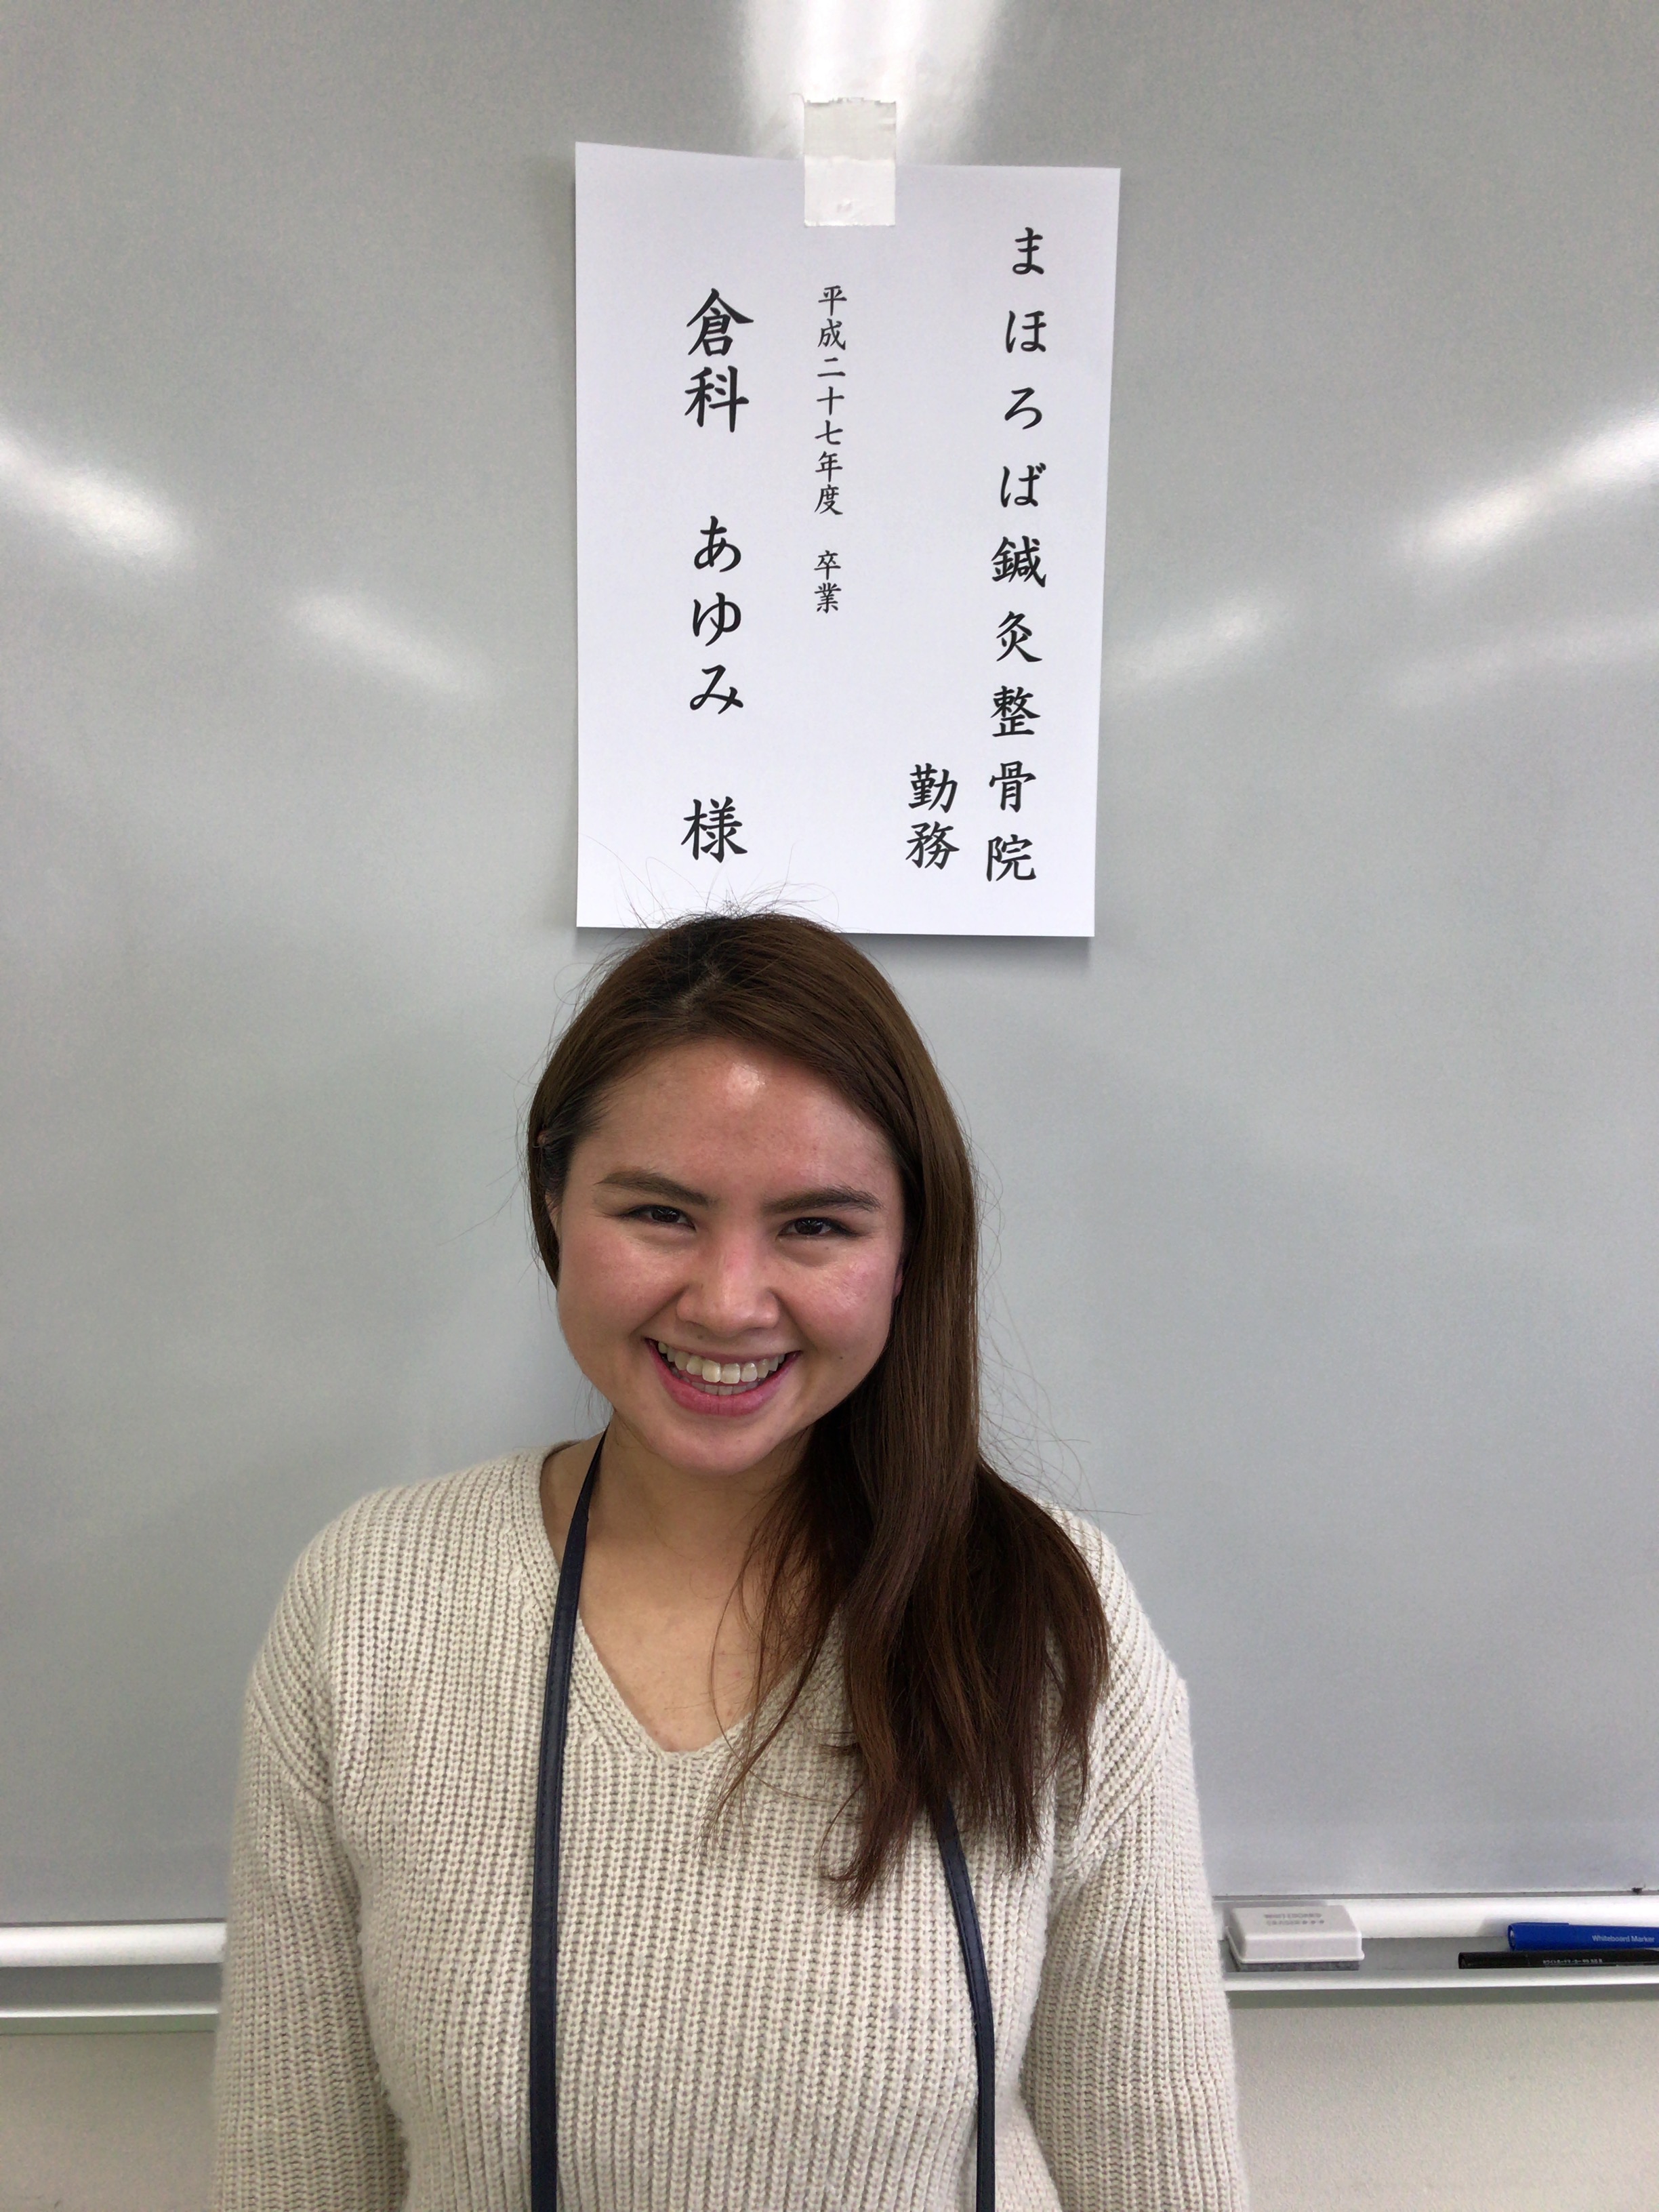 まほろば鍼灸整骨院
勤務
平成二十七年度 卒業
倉科 あゆみ 様
Whiteboard Marker